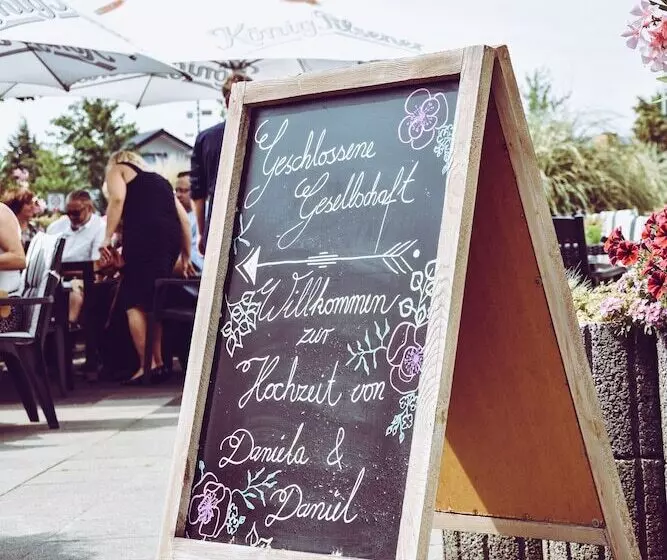 König Pilsener
Geschlossene
Gesellschaft
Willkommen
zur
Hochzeit von
Daniela &
Daniel